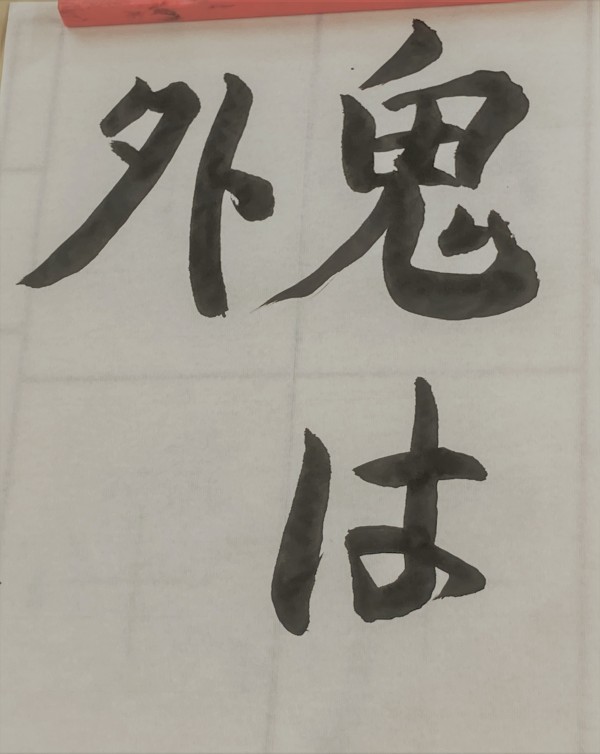 鬼は
外